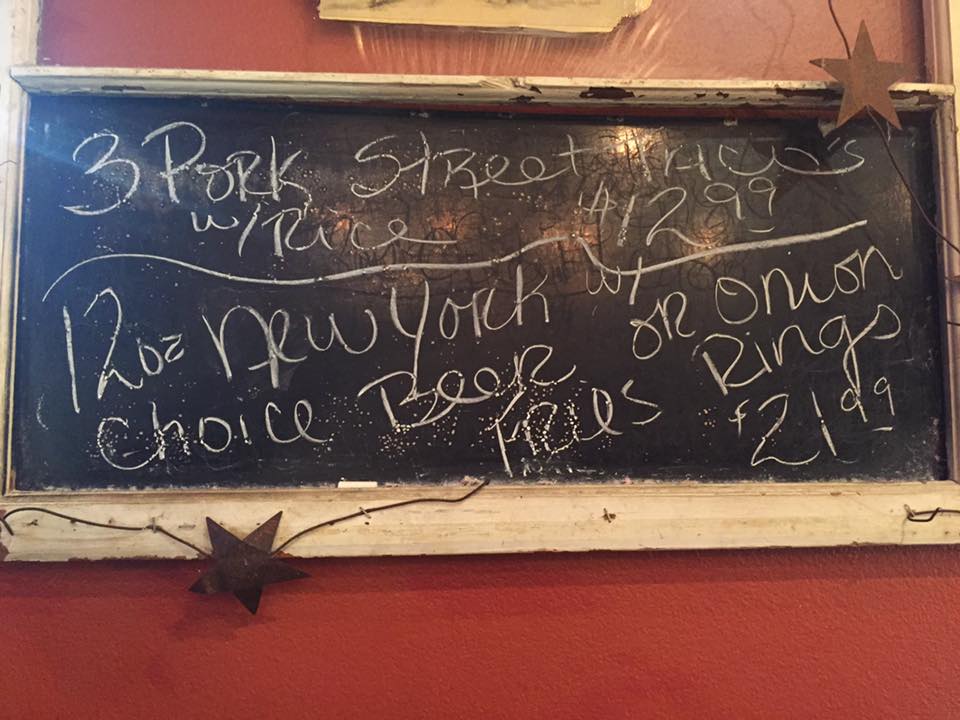 3 Pork Street Taco's
w/Rice $12.99
12oz New York w/
choice Beer Fries or Onion Rings
$21.99